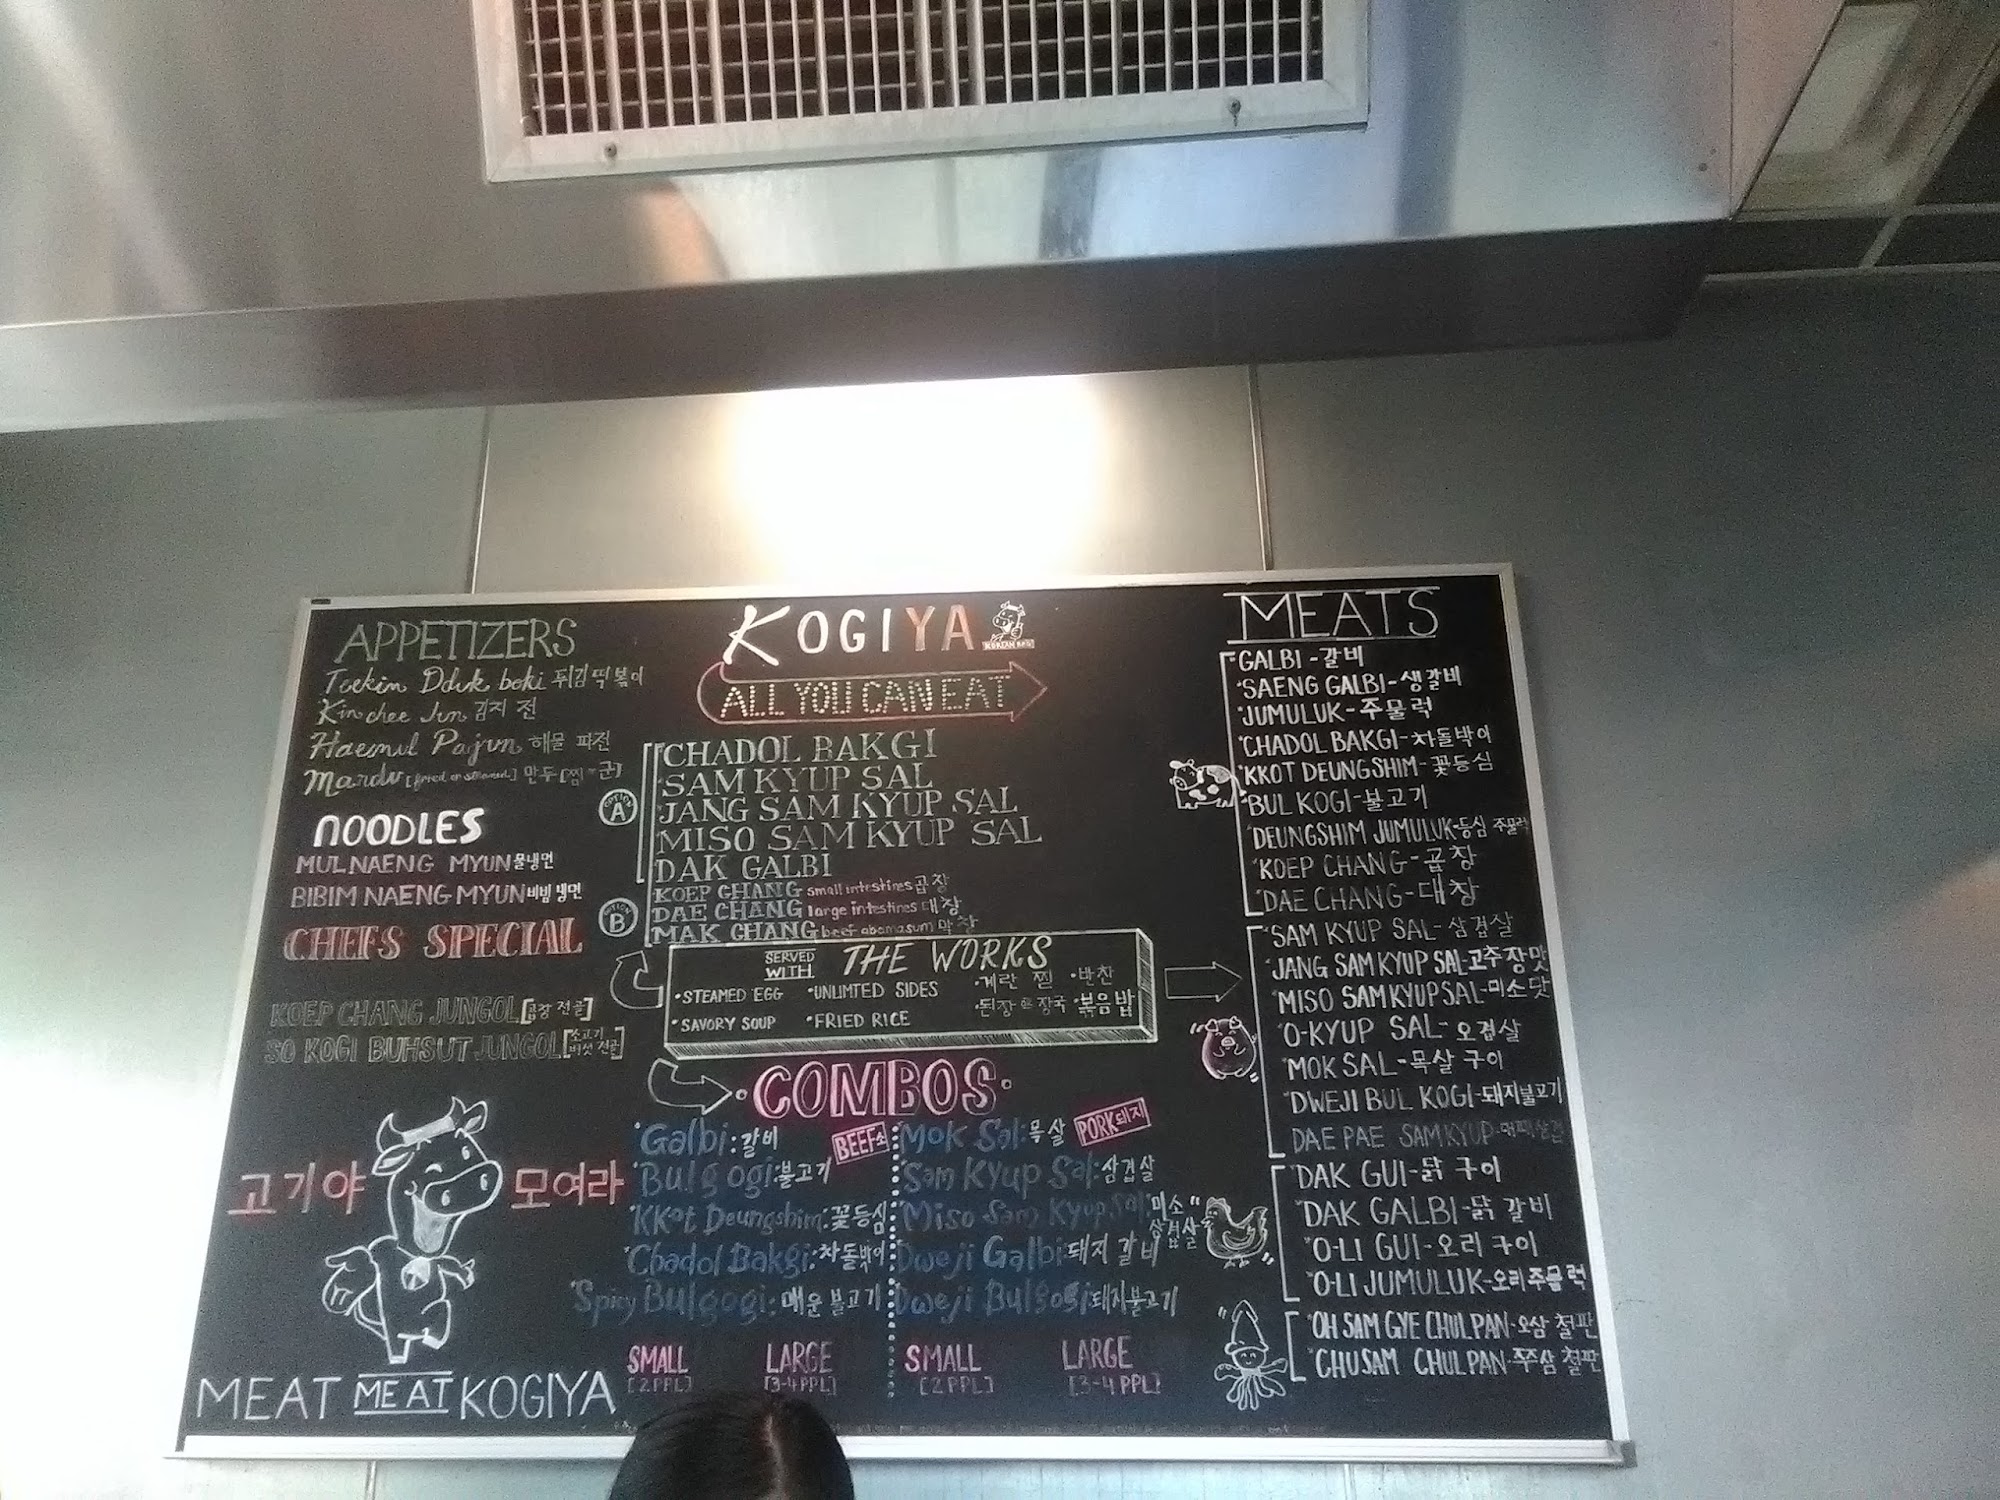 APPETIZERS
Twekim Dduk boki 튀김 떡 볶이
Kim chee Jun 김치 전
Haemul Pajun 해물 파전
Mandu [fried or steamed] 만두 [찜 군]
NOODLES
MUL NAENG MYUN 물냉면
BIBIM NAENG MYUN 비빔 냉면
CHEFS SPECIAL
KOEP CHANG JUNGOL [곱창 전골]
SO KOGI BUHSUT JUNGOL [소고기 버섯 전골]
고기야 모여라
MEAT ME AT KOGIYA
KOGIYA
KOREAN BBQ
ALL YOU CAN EAT
OPTION A
CHADOL BAKGI
SAM KYUP SAL
JANG SAM KYUP SAL
MISO SAM KYUP SAL
DAK GALBI
OPTION B
KOEP CHANG small intestines 곱창
DAE CHANG large intestines 대창
MAK CHANG beef abomasum 막창
SERVED WITH THE WORKS
•STEAMED EGG •UNLIMTED SIDES •계란 찜 •반찬
•SAVORY SOUP •FRIED RICE •된장 장국 •볶음밥
•COMBOS•
BEEF 소
Galbi: 갈비
Bulgogi: 불고기
KKot Deungshim: 꽃등심
Chadol Bakgi: 차돌박이
Spicy Bulgogi: 매운 불고기
SMALL LARGE
[2 PPL] [3-4 PPL]
PORK 돼지
Mok Sal: 목살
Sam Kyup Sal: 삼겹살
Miso Sam Kyup Sal: 미소 삼겹살
Dweji Galbi: 돼지 갈비
Dweji Bulgogi: 돼지불고기
SMALL LARGE
[2 PPL] [3-4 PPL]
MEATS
GALBI - 갈비
SAENG GALBI - 생갈비
JUMULUK - 주물럭
CHADOL BAKGI - 차돌박이
KKOT DEUNGSHIM - 꽃등심
BUL KOGI - 불고기
DEUNGSHIM JUMULUK - 등심 주물럭
KOEP CHANG - 곱창
DAE CHANG - 대창
SAM KYUP SAL - 삼겹살
JANG SAM KYUP SAL - 고추장맛
MISO SAM KYUP SAL - 미소맛
O-KYUP SAL - 오겹살
MOK SAL - 목살 구이
DWEJI BUL KOGI - 돼지불고기
DAE PAE SAM KYUP - 대패삼겹
DAK GUI - 닭 구이
DAK GALBI - 닭 갈비
O-LI GUI - 오리 구이
O-LI JUMULUK - 오리주물럭
OH SAM GYE CHUL PAN - 오삼 철판
CHUSAM CHUL PAN - 쭈삼 철판